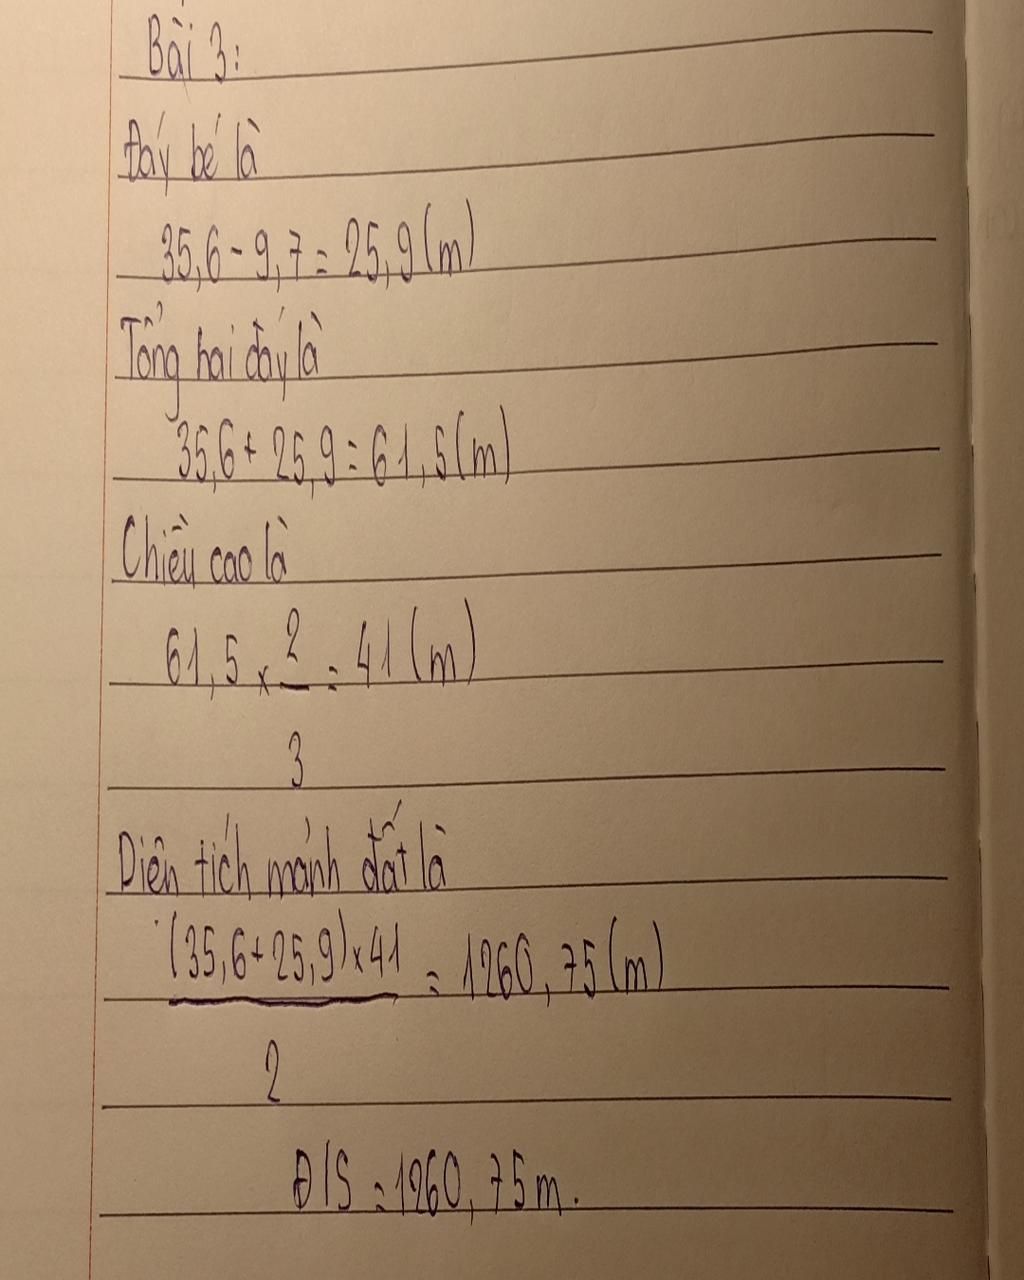 Bài 3:
Đáy bé là
35,6 - 9,7 = 25,9 (m)
Tổng hai đáy là
35,6 + 25,9 = 61,5 (m)
Chiều cao là
61,5 x 2/3 = 41 (m)
Diên tích mảnh đất là
(35,6 + 25,9) x 41 / 2 = 1260,75 (m)
Đ/S = 1260,75 m.